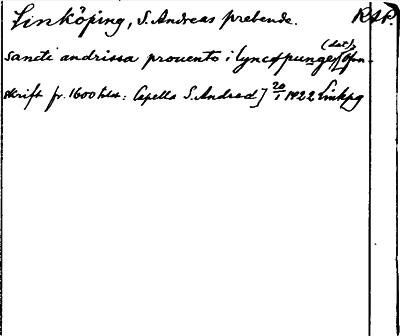 Linköping, S. Andreas prebende. RAP.
(dat)
sancti andrissa prouento i lyncøpunge [Ofvan-
skrift fr. 1600 talet: Capella S. Andreæ] 20/1 1422 Linkpg